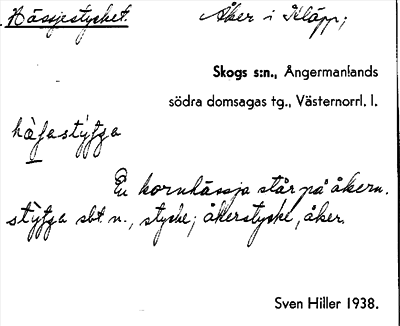 Hässjestycket. Åker i Kläpp;
Skogs s:n., Ångermanlands
södra domsagas tg., Västernorrl. l.
En kornhässja står på åkern.
sbt. n., stycke; åkerstycke, åker.
Sven Hiller 1938.